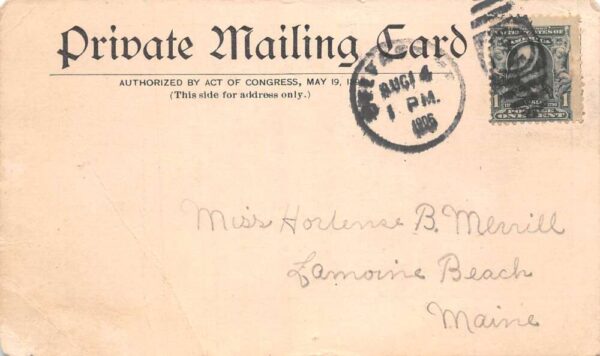 Private Mailing Card
AUTHORIZED BY ACT OF CONGRESS, MAY 19,
(This side for address only.)
AUG 14
1 PM.
1905
1 1
POSTAGE
ONE CENT
Miss Hortense B. Merrill
Lamoine Beach
Maine